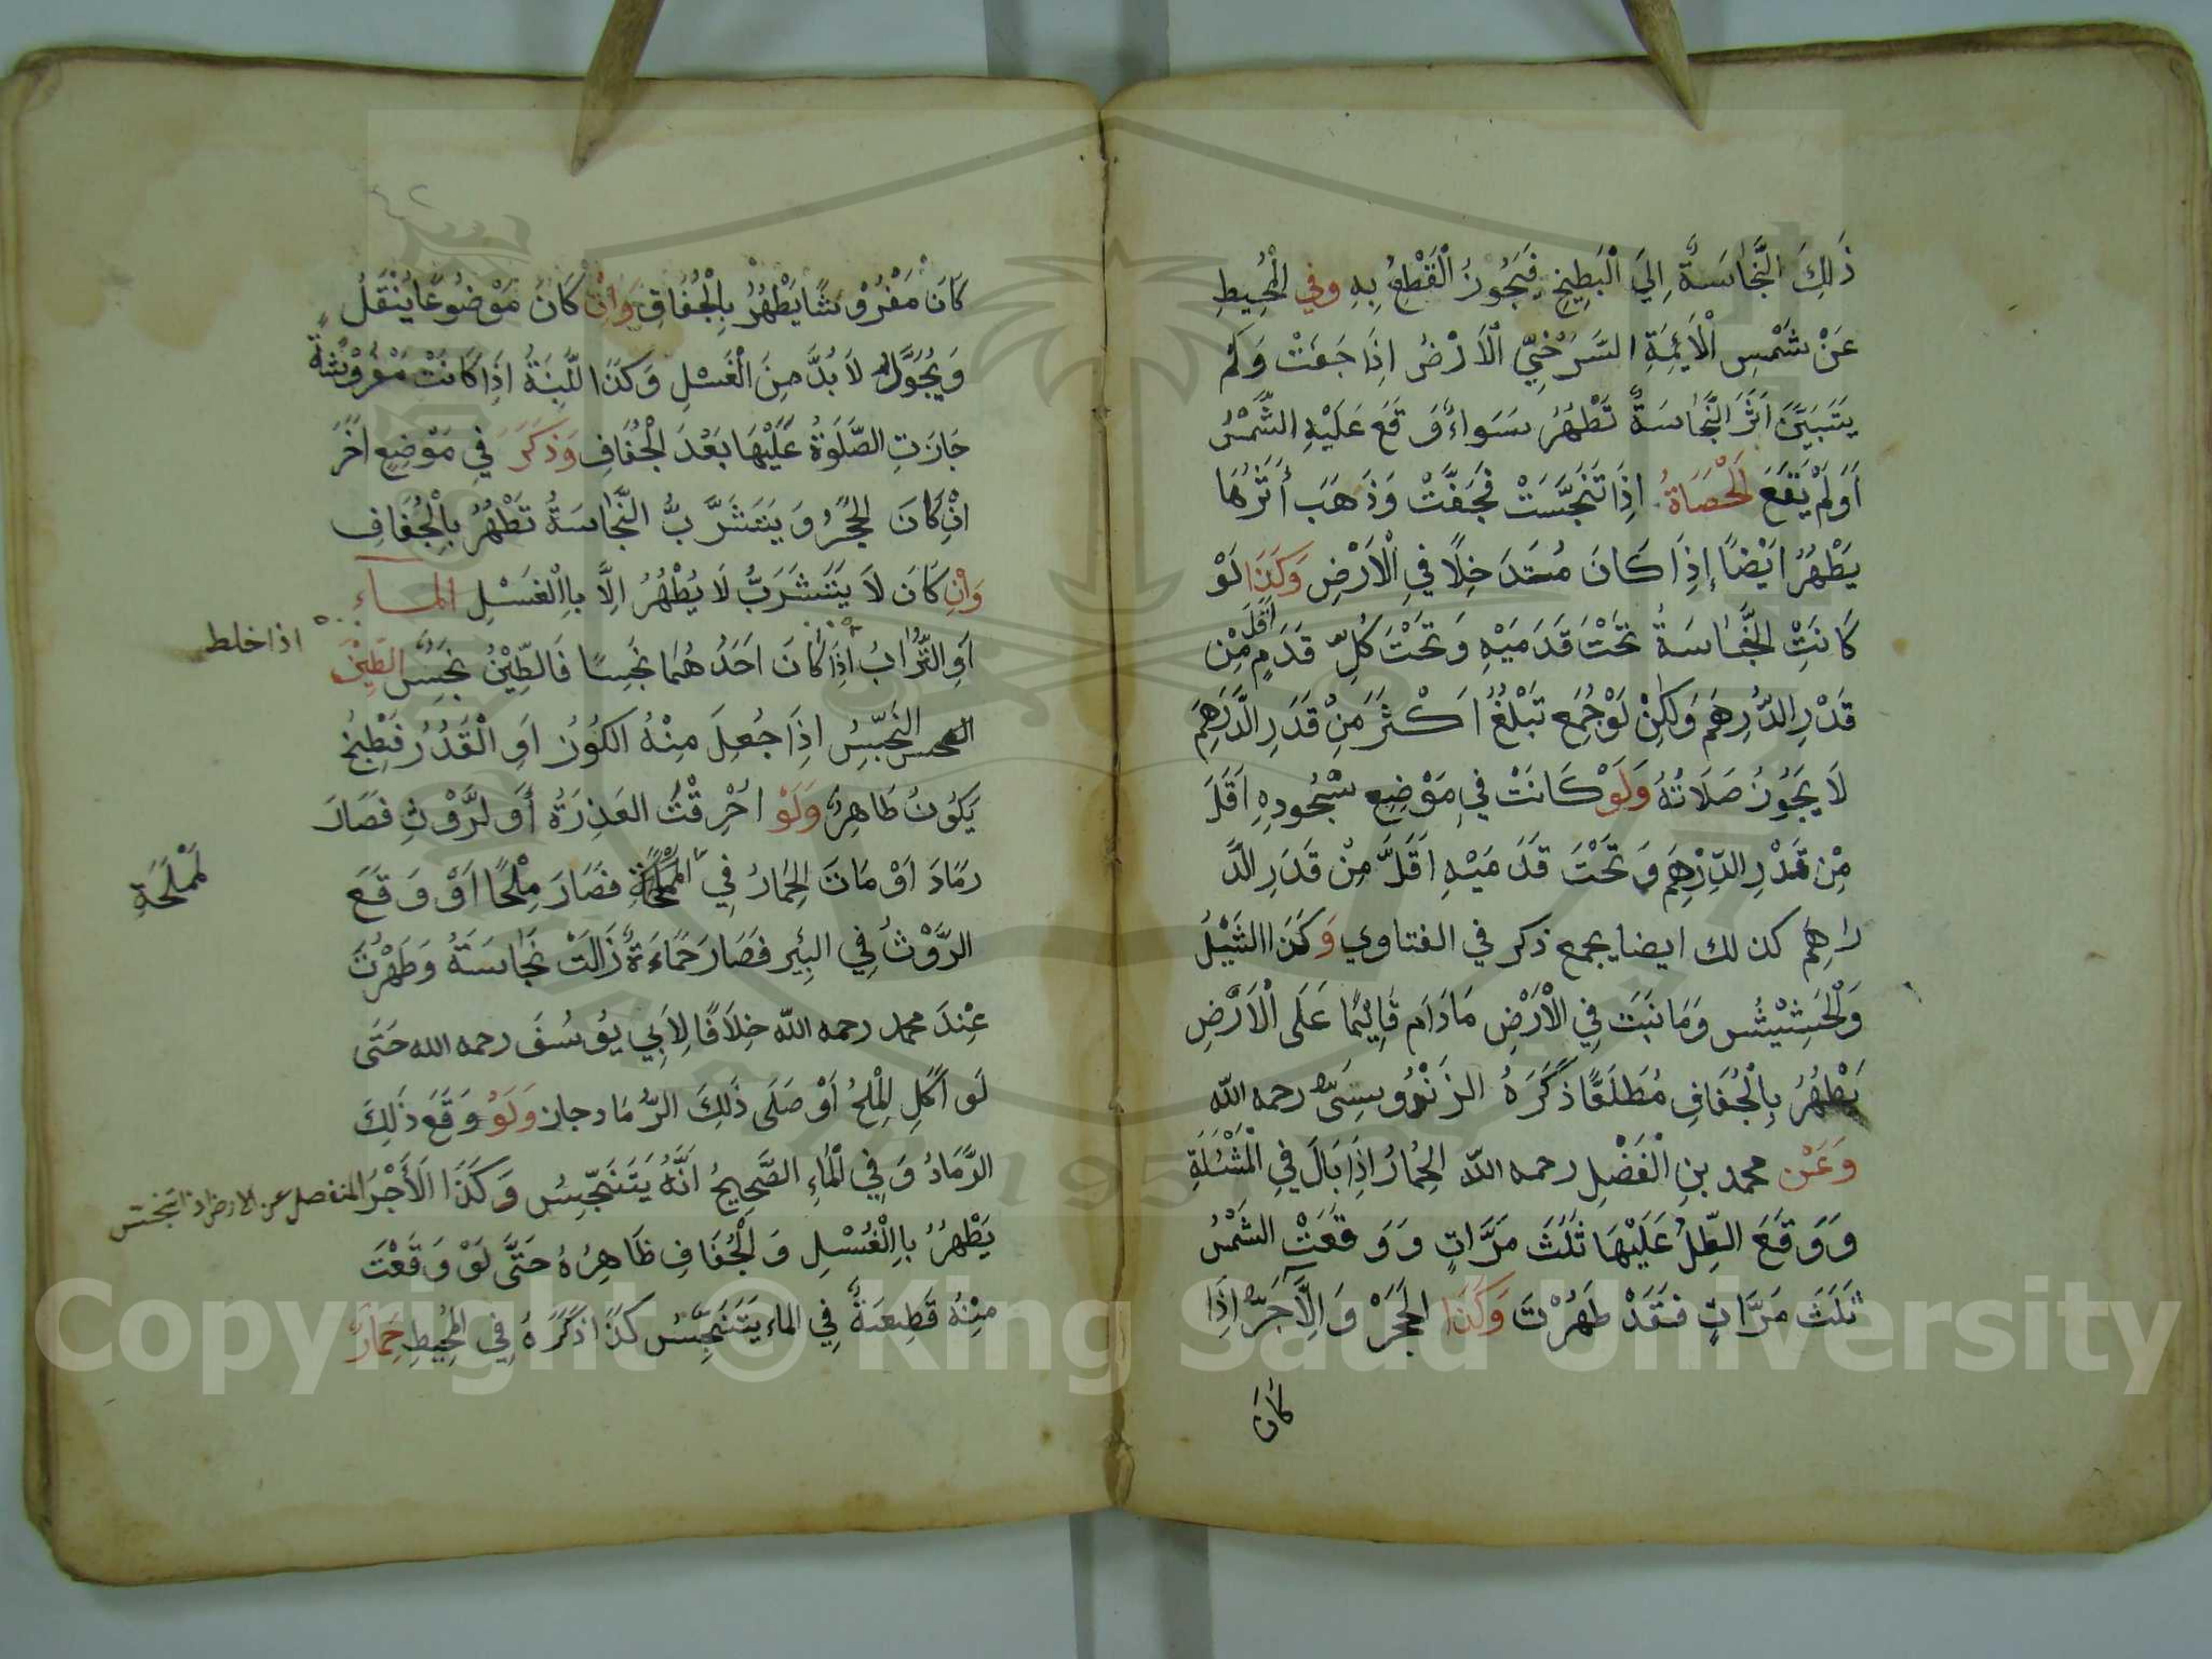 ذَلِكَ النَّجَاسَةُ اِلَي الْبَطِيخِ فَيَجُوزُ الْقَطْعُ بِهِ وفي الْمُحِيطِ
عَنْ شَمْسِ الْاَئِمَّةِ السَّرَخْسِيِّ الْاَرْضُ اِذَا جَفَّتْ وَلَمْ
يَتَبَيَّنَ اَثَرَ النَّجَاسَةُ تَطْهُرُ سَوَاءٌ وَقَعَ عَلَيْهِ الشَّمْسُ
اَوَلَمْ يَقَعَ لْحَصَاةُ اِذَا تَنَجَّسَتْ فَجَفَّتْ وَذَهَبَ أَثَرُهَا
يَطْهُرُ اَيْضًا إِذَا كَانَ مُتَدَخِلًا فِي الْاَرْضِ وَكَذَا لَوْ
كَانَتِ النَّجَاسَةُ تَحْتَ قَدَمَيْهِ وَتَحْتَ كُلِّ قَدَمٍ اَقَلَّ مِنْ
قَدْرِ الدِّرْهَمِ وَلَكِنْ لَوْ جُمِعَ تَبْلُغُ اَكْثَرَ مِنْ قَدَرِ الدَّرَهِمِ
لَا يَجُوزُ صَلَاتُهُ وَلَوْ كَانَتْ فِي مَوْضِعِ سُجُودِهِ اَقَلَّ
مِنْ قَدْرِ الدِّرْهِمِ وَتَحْتَ قَدَمَيْهِ اَقَلَّ مِنْ قَدَرِ الدَّ
راهِمِ كذلك ايضا يجمع ذكر في الفتاوي وَكَذَا الثَيْلُ
وَلْحَشِيْشُ وَمَا نَبَتَ فِي الْاَرْضِ مَادَامَ قَائِمًا عَلَى الْاَرْضِ
يَطْهُرُ بِالْجُفَافِ مُطَلَقًا ذَكَرَهُ الزَنْدَوِيسِتِيُّ رحمه الله
وَعَنْ محمد بنِ الْفَضْلِ رحمه الله الْحِمَارُ اِذَا بَالَ فِي الْمَثْئَلَةِ
وَوَقَعَ الظِلُّ عَلَيْهَا ثَلَثَ مَرَّاتٍ وَوَقَعَتْ الشَّمْسُ
ثَلَثَ مَرَّاتٍ فَقَدْ طَهُرْتَ وَكَذَا الْحَجَرُ وَالْآجَرُّ اِذَا
كَانَ
كَانَ مَفْرُوْشًا يَطْهُرُ بِالْجُفَافِ وَاِنْ كَانَ مَوْضُوعًا يُنْقَلُ
وَيُحَوَّلُ لَا بُدَّ مِنَ الْغَسْلِ وَكَذَا اللَّبِنَةُ اِذَا كَانَتْ مَفْرُوْشَةٌ
جَازَتِ الصَّلَوَةُ عَلَيْهَا بَعْدَ الْجُفَافِ وَذَكَرَ فِي مَوْضِعٍ اخَرَ
اِنْ كَانَ الْحَجَرُ وَيَتَشَرَّبُ النَّجَاسَةُ تَطْهُرُ بِالْجُفَافِ
وَاِنْ كَانَ لَا يَتَشَرَبُّ لَا يُطْهُرُ اِلَّا بِاالْغَسْلِ المآء
اَوِ التُّرَابُ اِذَا كَانَ اَحَدُ هُمَا نَجِسًا فَالطِّيْنُ نَجِسٌ الطِيْنُ
اذا خلط
النَجِسُ اِذَا جُعِلَ مِنْهُ الكُوْزُ اَوِ الْقَدُرُ فَطُبِخُ
يَكُوْنُ طَاهِرٌ وَلَوْ اُحْرِقْتُ العَذِرَةُ أَوَ لرَّوْثِ فَصَارَ
رمَادَ اَوْ مَاتَ الحِمَارُ فِي الْمَمْلَحَةِ فَصَارَ مِلْحًا اَوْ وَقَعَ
لَمْلَحَةِ
الرَّوْثُ فِي البِئْرِ فَصَارَ حَمَاءَةً زَالَتْ نَجَاسَتَهُ وَطَهُرْتَ
عِنْدَ محمد رحمه الله خِلَافًا لِاَبِي يُوسُفَ رحمه الله حَتَى
لَو اَكَلِ الْمِلْحُ اَوْ صَلَى ذَلِكَ الرَّمَادِ جاز وَلَوْ وَقَعَ ذَلِكَ
الرَّمَادُ وَفِي الْمَاءِ الصَّحِيحُ اَنَّهُ يَتَنَجِّسُ وَكَذَا الْأَجُرُ المنفصل عن الارض اذا تنجست
يَطْهُرُ بِاالْغُسْلِ وَالْجُفَافِ ظَاهِرُهُ حَتَّى لَوْ وَقَعْتَ
مِنْهُ قَطِعَةٌ فِي الماء يَتَنَجِّسُ كَذَا ذَكَرَهُ فِي الْمُحِيْطِ حِمَارٌ
Copyright © King Saud University
1957